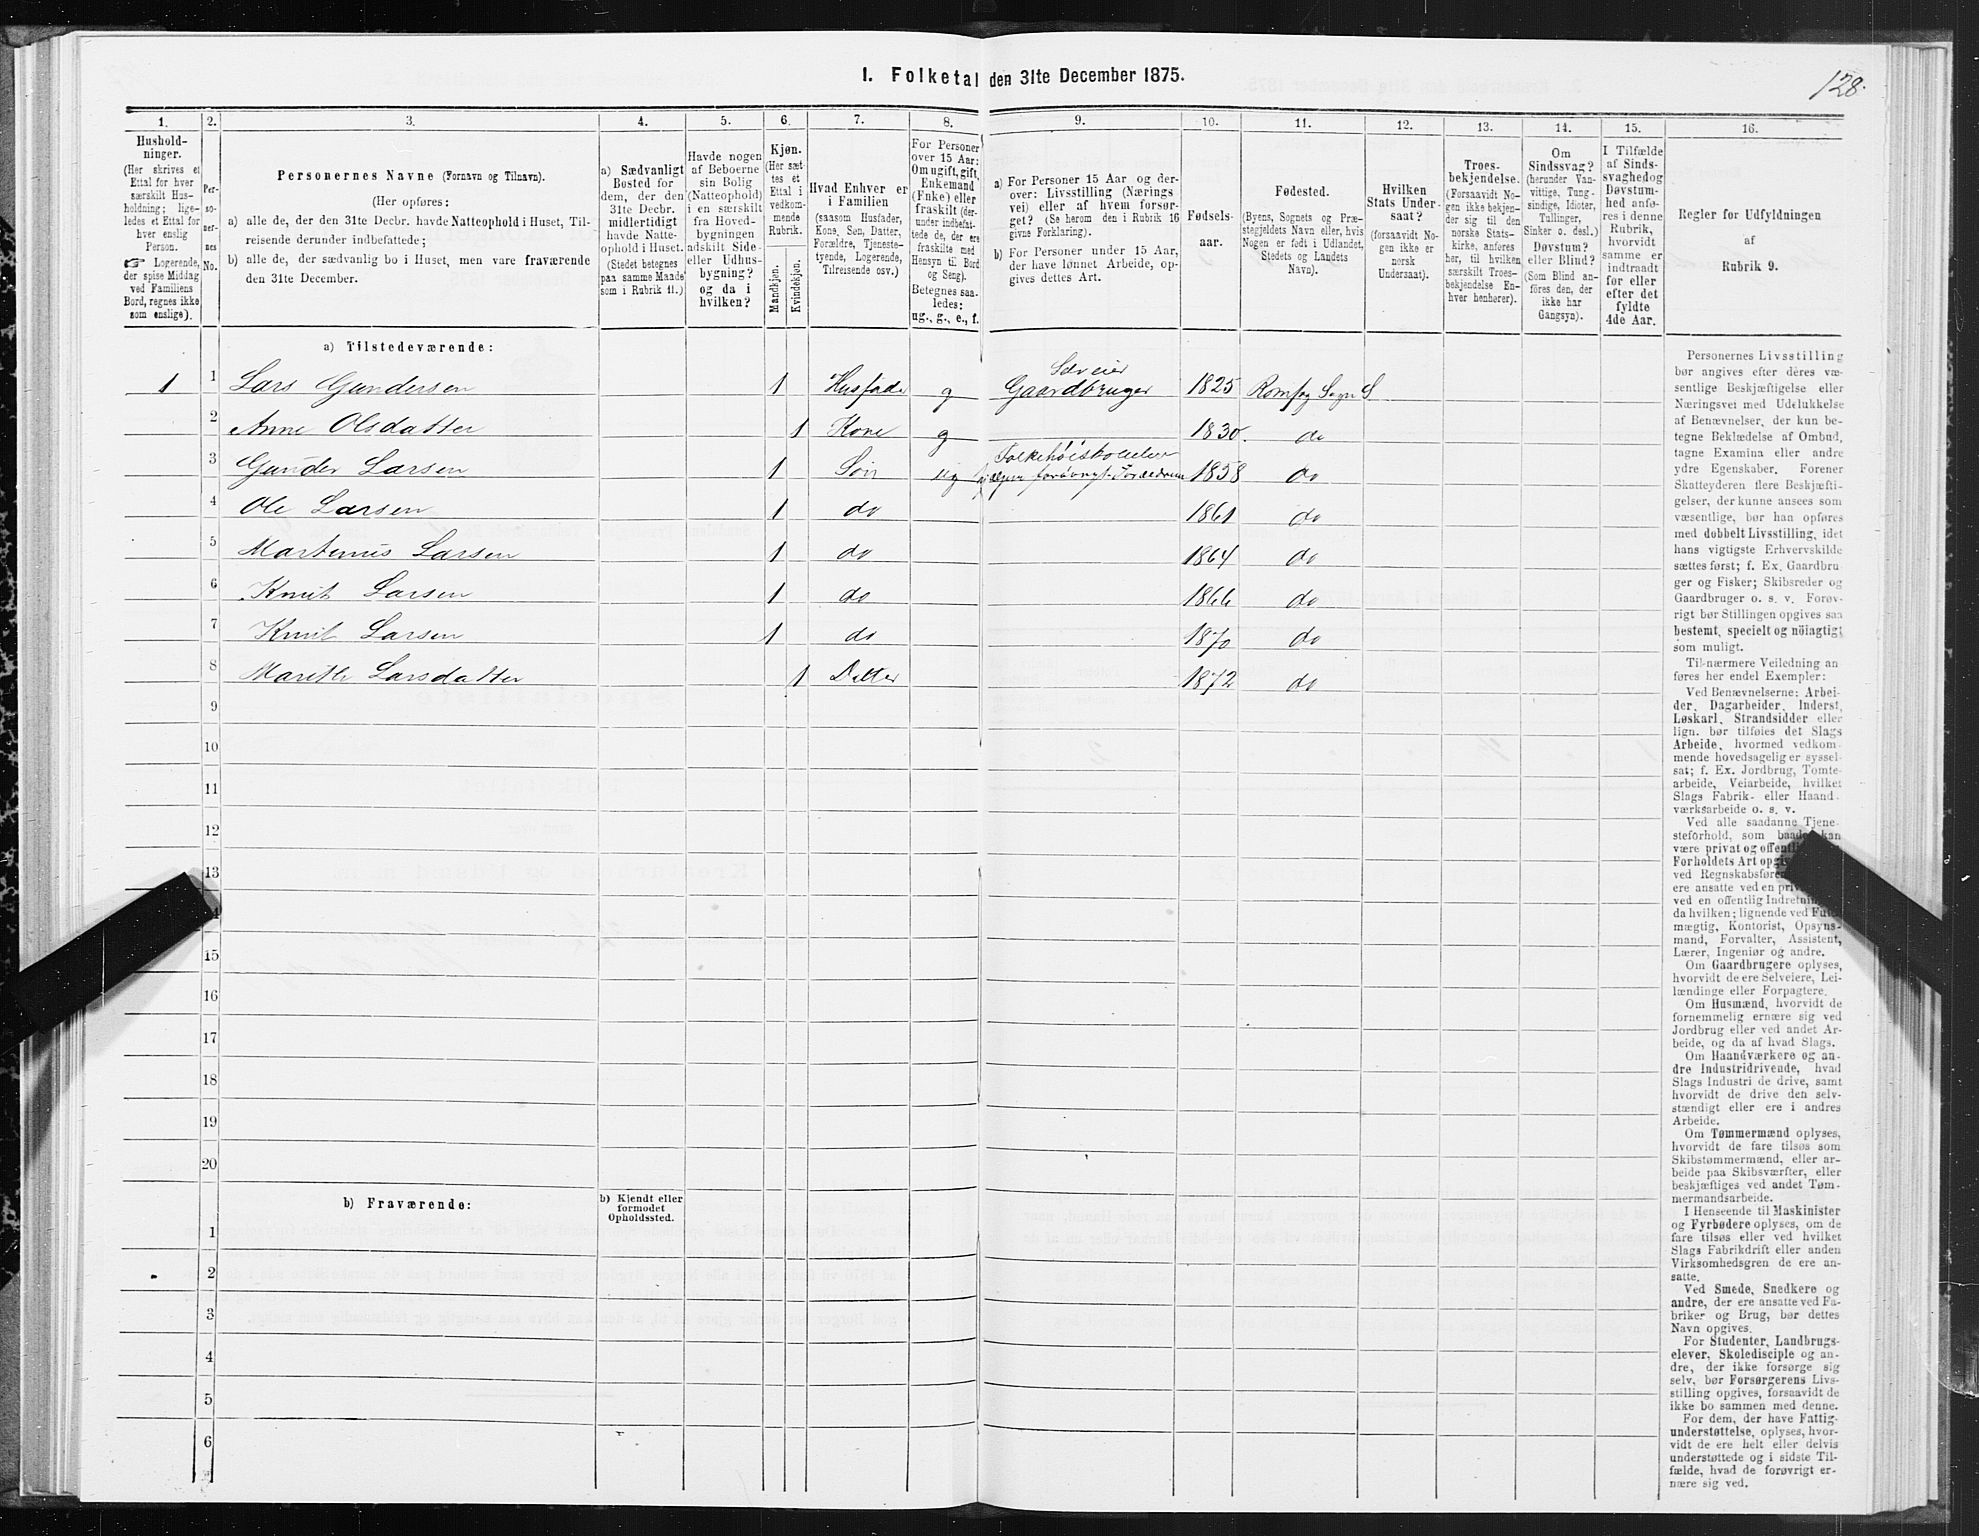 128.
1. Folketal den 31te December 1875.
1.
Hushold-
ninger.
(Her skrives et
Ettal for hver
særskilt Hus-
holdning; lige-
ledes et Ettal for
hver enslig
Person.
☞ Logerende,
der spise Middag
ved Familiens
Bord, regnes ikke
som enslige).
2.
Per-
so-
ner-
nes
No.
3.
Personernes Navne (Fornavn og Tilnavn).
(Her opføres:
a) alle de, der den 31te Decbr. havde Natteophold i Huset, Til-
reisende derunder indbefattede;
b) alle de, der sædvanlig bo i Huset, men vare fraværende
den 31te December.
4.
a) Sædvanligt
Bosted for
dem, der den
31te Decbr.
midlertidigt
havde Natte-
ophold i Huset.
(Stedet betegnes
paa samme Maade
som i Rubrik 11.)
5.
Havde nogen
af Beboerne
sin Bolig
(Natteophold)
i en særskilt
fra Hoved-
bygningen
adskilt Side-
eller Udhus-
bygning?
og da i
hvilken?
6.
Kjøn.
(Her sæt-
tes et
Ettal i
vedkom-
mende
Rubrik.
Mandkjøn.
Kvindekjøn.
7.
Hvad Enhver er
i Familien
(saasom Husfader,
Kone, Søn, Datter,
Forældre, Tjeneste-
tyende, Logerende,
Tilreisende osv.)
8.
For Personer
over 15 Aar:
Om ugift, gift,
Enkemand
(Enke) eller
fraskilt (der-
under indbefat-
tede de, der ere
fraskilte med
Hensyn til Bord
og Seng).
Betegnes saa-
ledes:
ug., g., e., f.
9.
a) For Personer 15 Aar og der-
over: Livsstilling (Nærings
vei) eller af hvem forsør-
get? (Se herom den i Rubrik 16
givne Forklaring).
b) For Personer under 15 Aar,
der have lønnet Arbeide, op-
gives dettes Art.
10.
Fødsels-
aar.
11.
Fødested.
(Byens, Sognets og Præ-
stegjeldets Navn eller, hvis
Nogen er født i Udlandet,
Stedets og Landets
Navn).
12.
Hvilken
Stats Under-
saat?
(forsaavidt No-
gen ikke er
norsk
Undersaat).
13.
Troes-
bekjendelse.
(Forsaavidt No-
gen ikke bekjen-
der sig til den
norske Stats-
kirke, anføres
her, til hvilken
særskilt Troes-
bekjendelse En-
hver henhører).
14.
Om
Sindssvag?
(herunder Van-
vittige, Tung-
sindige, Idioter,
Tullinger,
Sinker o. desl.)
Døvstum?
eller Blind?
(Som Blind an-
føres den, der
ikke har
Gangsyn).
15.
I Tilfælde
af Sinds-
svaghed og
Døvstum-
hed anfø-
res i denne
Rubrik,
hvorvidt
samme er
indtraadt
før eller
efter det
fyldte
4de Aar.
16.
Regler for Udfyldningen
af
Rubrik 9.
a) Tilstedeværende:
1 1 Lars Gundersen 1 Husfader g Selveier Gaardbruger 1825 Romsog Sogn S
2 Anne Olsdatter 1 Kone g 1830. do
3 Gunder Larsen 1 Søn ug Forældrene 1858 do
4 Ole Larsen 1 do 1861 do
5 Martinus Larsen 1 do 1864 do
6 Knut Larsen 1 do 1866 do
7 Knut Larsen 1 do 1870 do
8 Marithe Larsdatter 1 Datter 1872 do
9
10
11
12
13
15
16
17
18
19
20
b) Fraværende:
b) Kjendt eller
formodet
Opholdssted.
1
2
3
4
5
6
Personernes Livsstilling
bør angives efter deres væ-
sentlige Beskjæftigelse eller
Næringsvei med Udelukkelse
af Benævnelser, der kun be-
tegne Beklædelse af Ombud,
tagne Examina eller andre
ydre Egenskaber. Forener
Skatteyderen flere Beskjæfti-
gelser, der kunne ansees som
væsentlige, bør han opføres
med dobbelt Livsstilling, idet
hans vigtigste Erhvervskilde
sættes først; f. Ex. Gaardbru
ger og Fisker; Skibsreder og
Gaardbruger o. s. v. Forøv-
rigt bør Stillingen opgives saa
bestemt, specielt og nöiagtigt
som muligt.
Til nærmere Veiledning an
føres her endel Exempler:
Ved Benævnelserne: Arbei-
der, Dagarbeider, Inderst,
Løskarl, Strandsidder eller
lign. bør tilføies det Slags
Arbeide, hvormed vedkom-
mende hovedsagelig er syssel-
sat; f. Ex. Jordbrug, Tomte-
arbeide, Veiarbeide, hvilket
Slags Fabrik- eller Haand-
værksarbeide o. s. v.
Ved alle saadanne Tjene-
steforhold, som baade kan
være privat og
Forholdets Art
ved
ere ansatte ved en
ved en offentlig
da hvilken; lignende ved
mægtig, Kontorist, Opsyns-
mand, Forvalter, Assistent,
Lærer, Ingeniør og andre.
Om Gaardbrugere oplyses,
hvorvidt de ere Selveiere, Lei-
lændinge eller Forpagtere.
Om Husmænd, hvorvidt de
fornemmelig ernære sig ved
Jordbrug eller ved andet Ar-
beide, og da af hvad Slags.
Om Haandværkere og an-
dre Industridrivende, hvad
Slags Industri de drive, samt
hvorvidt de drive den selv-
stændigt eller ere i andres
Arbeide.
Om Tømmermænd oplyses,
hvorvidt de fare tilsøs som
Skibstømmermænd, eller ar-
beide paa Skibsværfter, eller
beskjæftiges ved andet Tøm-
mermandsarbeide.
I Henseende til Maskinister
og Fyrbødere oplyses, om de
fare tilsøs eller ved hvilket
Slags Fabrikdrift eller anden
Virksomhedsgren de ere an-
satte.
Ved Smede, Snedkere og
andre, der ere ansatte ved Fa-
briker og Brug, bør dettes
Navn opgives.
For Studenter, Landbrugs-
elever, Skoledisciple og an-
dre, der ikke forsørge sig
selv, bør Forsørgerens Livs-
stilling opgives, forsaavidt de
ikke bo sammen med denne.
For dem, der have Fattig-
understøttelse, oplyses, hvor-
vidt de ere helt eller delvis
understøttede og i sidste Til-
fælde, hvad de forøvrigt er-
nære sig ved.